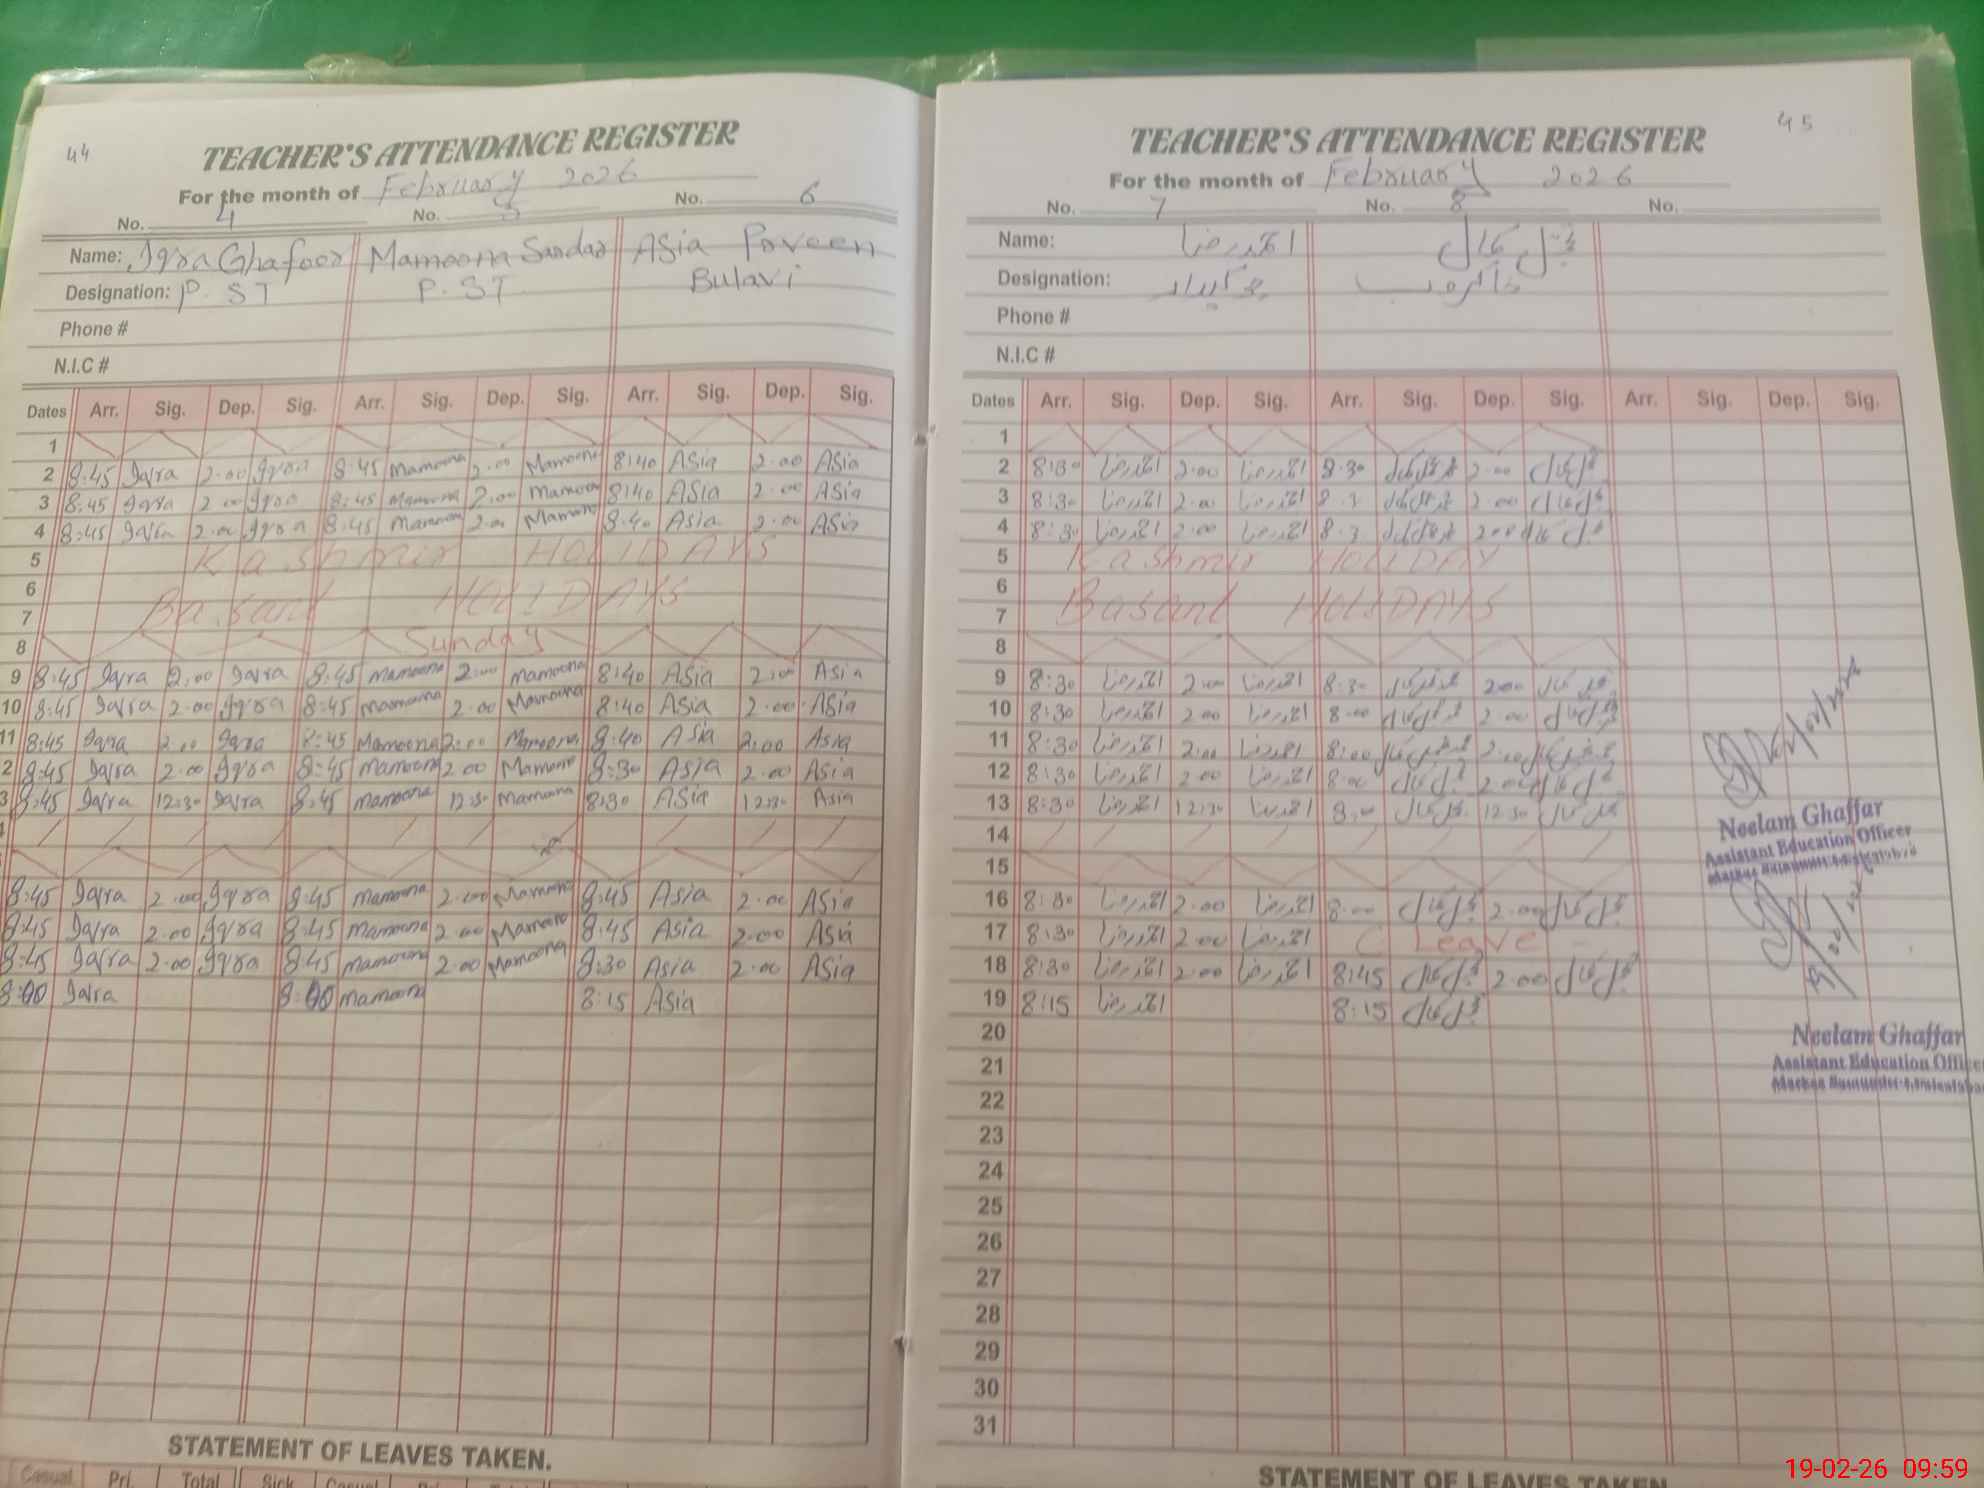 44
TEACHER'S ATTENDANCE REGISTER
For the month of February 2026
No. 4 No. 5 No. 6
Name: Iqra Ghafoor Mamoona Sardar Asia Parveen
Designation: P. ST P. ST Bulavi
Phone #
N.I.C #
Dates Arr. Sig. Dep. Sig. Arr. Sig. Dep. Sig. Arr. Sig. Dep. Sig.
1
2 8:45 Iqra 2.00 Iqra 8:45 Mamoona 2.00 Mamoona 8:40 Asia 2.00 Asia
3 8:45 Iqra 2.00 Iqra 8:45 Mamoona 2.00 Mamoona 8:40 Asia 2.00 Asia
4 8:45 Iqra 2.00 Iqra 8:45 Mamoona 2.00 Mamoona 8:40 Asia 2.00 Asia
5 Kashmir HOLIDAYS
6
7 Basant HOLIDAYS
8 Sunday
9 8:45 Iqra 2.00 Iqra 8:45 Mamoona 2.00 Mamoona 8:40 Asia 2.00 Asia
10 8:45 Iqra 2.00 Iqra 8:45 Mamoona 2.00 Mamoona 8:40 Asia 2.00 Asia
11 8:45 Iqra 2.00 Iqra 8:45 Mamoona 2:00 Mamoona 8:40 Asia 2:00 Asia
2 8:45 Iqra 2.00 Iqra 8:45 Mamoona 2.00 Mamoona 8:30 Asia 2.00 Asia
3 8:45 Iqra 12:30 Iqra 8:45 Mamoona 12:30 Mamoona 8:30 Asia 12:30 Asia
8:45 Iqra 2.00 Iqra 8:45 Mamoona 2.00 Mamoona 8:45 Asia 2.00 Asia
8:45 Iqra 2.00 Iqra 8:45 Mamoona 2.00 Mamoona 8:45 Asia 2.00 Asia
8:45 Iqra 2.00 Iqra 8:45 Mamoona 2.00 Mamoona 8:30 Asia 2.00 Asia
8:00 Iqra 8:00 Mamoona 8:15 Asia
STATEMENT OF LEAVES TAKEN.
Casual Pri. Total Sick Casual
45
TEACHER'S ATTENDANCE REGISTER
For the month of February 2026
No. 7 No. 8 No.
Name: احمد رضا
Designation: چوکیدار خاکروب
Phone #
N.I.C #
Dates Arr. Sig. Dep. Sig. Arr. Sig. Dep. Sig. Arr. Sig. Dep. Sig.
1
2 8:30 احمد رضا 2.00 احمد رضا 8.30 2.00
3 8:30 احمد رضا 2.00 احمد رضا 8.3 2.00
4 8:30 احمد رضا 2.00 احمد رضا 8.3 2.00
5 Kashmir HOLIDAY
6
7 Basant HOLIDAYS
8
9 8:30 احمد رضا 2.00 احمد رضا 8.30 2.00
10 8:30 احمد رضا 2.00 احمد رضا 8.00 2.00
11 8:30 احمد رضا 2:00 احمد رضا 8:00 2.00
12 8:30 احمد رضا 2.00 احمد رضا 8:00 2.00
13 8:30 احمد رضا 12:30 احمد رضا 8:00 12.30
14
15
16 8:30 احمد رضا 2.00 احمد رضا 8.00 2.00
17 8:30 احمد رضا 2.00 احمد رضا C Leave
18 8:30 احمد رضا 2.00 احمد رضا 8:45 2.00
19 8:15 احمد رضا 8:15
20
21
22
23
24
25
26
27
28
29
30
31
Neelam Ghaffar
Assistant Education Officer
Neelam Ghaffar
Assistant Education Office
STATEMENT OF LEAVES TAKEN
19-02-26 09:59